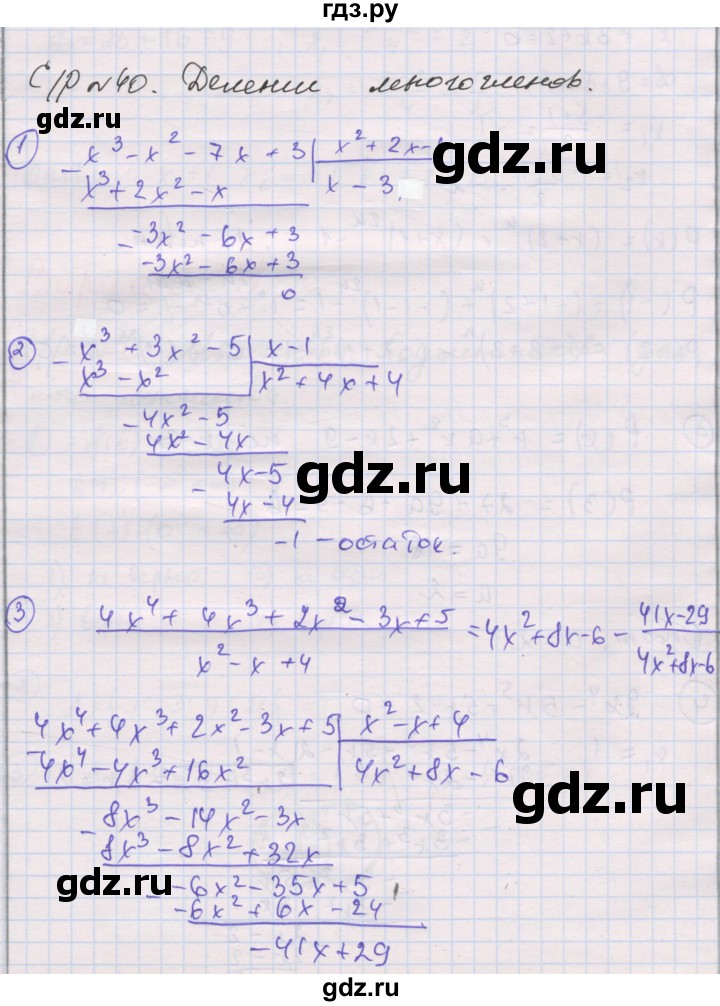 гдз.ру
С/р №40. Делении многочленов.
gdz.ru
1 x³ - x² - 7x + 3 | x² + 2x - 1
gdz.ru
x³ + 2x² - x | x - 3
-3x² - 6x + 3
-3x² - 6x + 3
0
2 x³ + 3x² - 5 | x - 1
x³ - x² | x² + 4x + 4
- 4x² - 5
4x² - 4x
gdz.ru
gdz.ru
- 4x - 5
4x - 4
-1 - остаток.
3 4x⁴ + 4x³ + 2x² - 3x + 5 / x² - x + 4 = 4x² + 8x - 6 - 41x - 29 / 4x² + 8x - 6
4x⁴ + 4x³ + 2x² - 3x + 5 | x² - x + 4
- 4x⁴ - 4x³ + 16x² | 4x² + 8x - 6
gdz.ru
- 8x³ - 14x² - 3x
8x³ - 8x² + 32x
gdz.ru
- -6x² - 35x + 5
-6x² + 6x - 24
-41x + 29
gdz.ru
gdz.ru